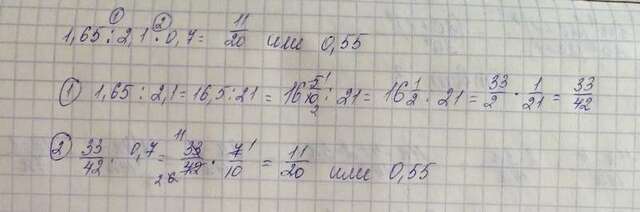 ① ②
1,65 : 2,1 · 0,7 = 11/20 или 0,55
① 1,65 : 2,1 = 16,5 : 21 = 16 5¹/10₂ : 21 = 16 1/2 · 21 = 33/2 · 1/21 = 33/42
② 33/42 · 0,7 = ¹¹33/42 · 7¹/10 = 11/20 или 0,55